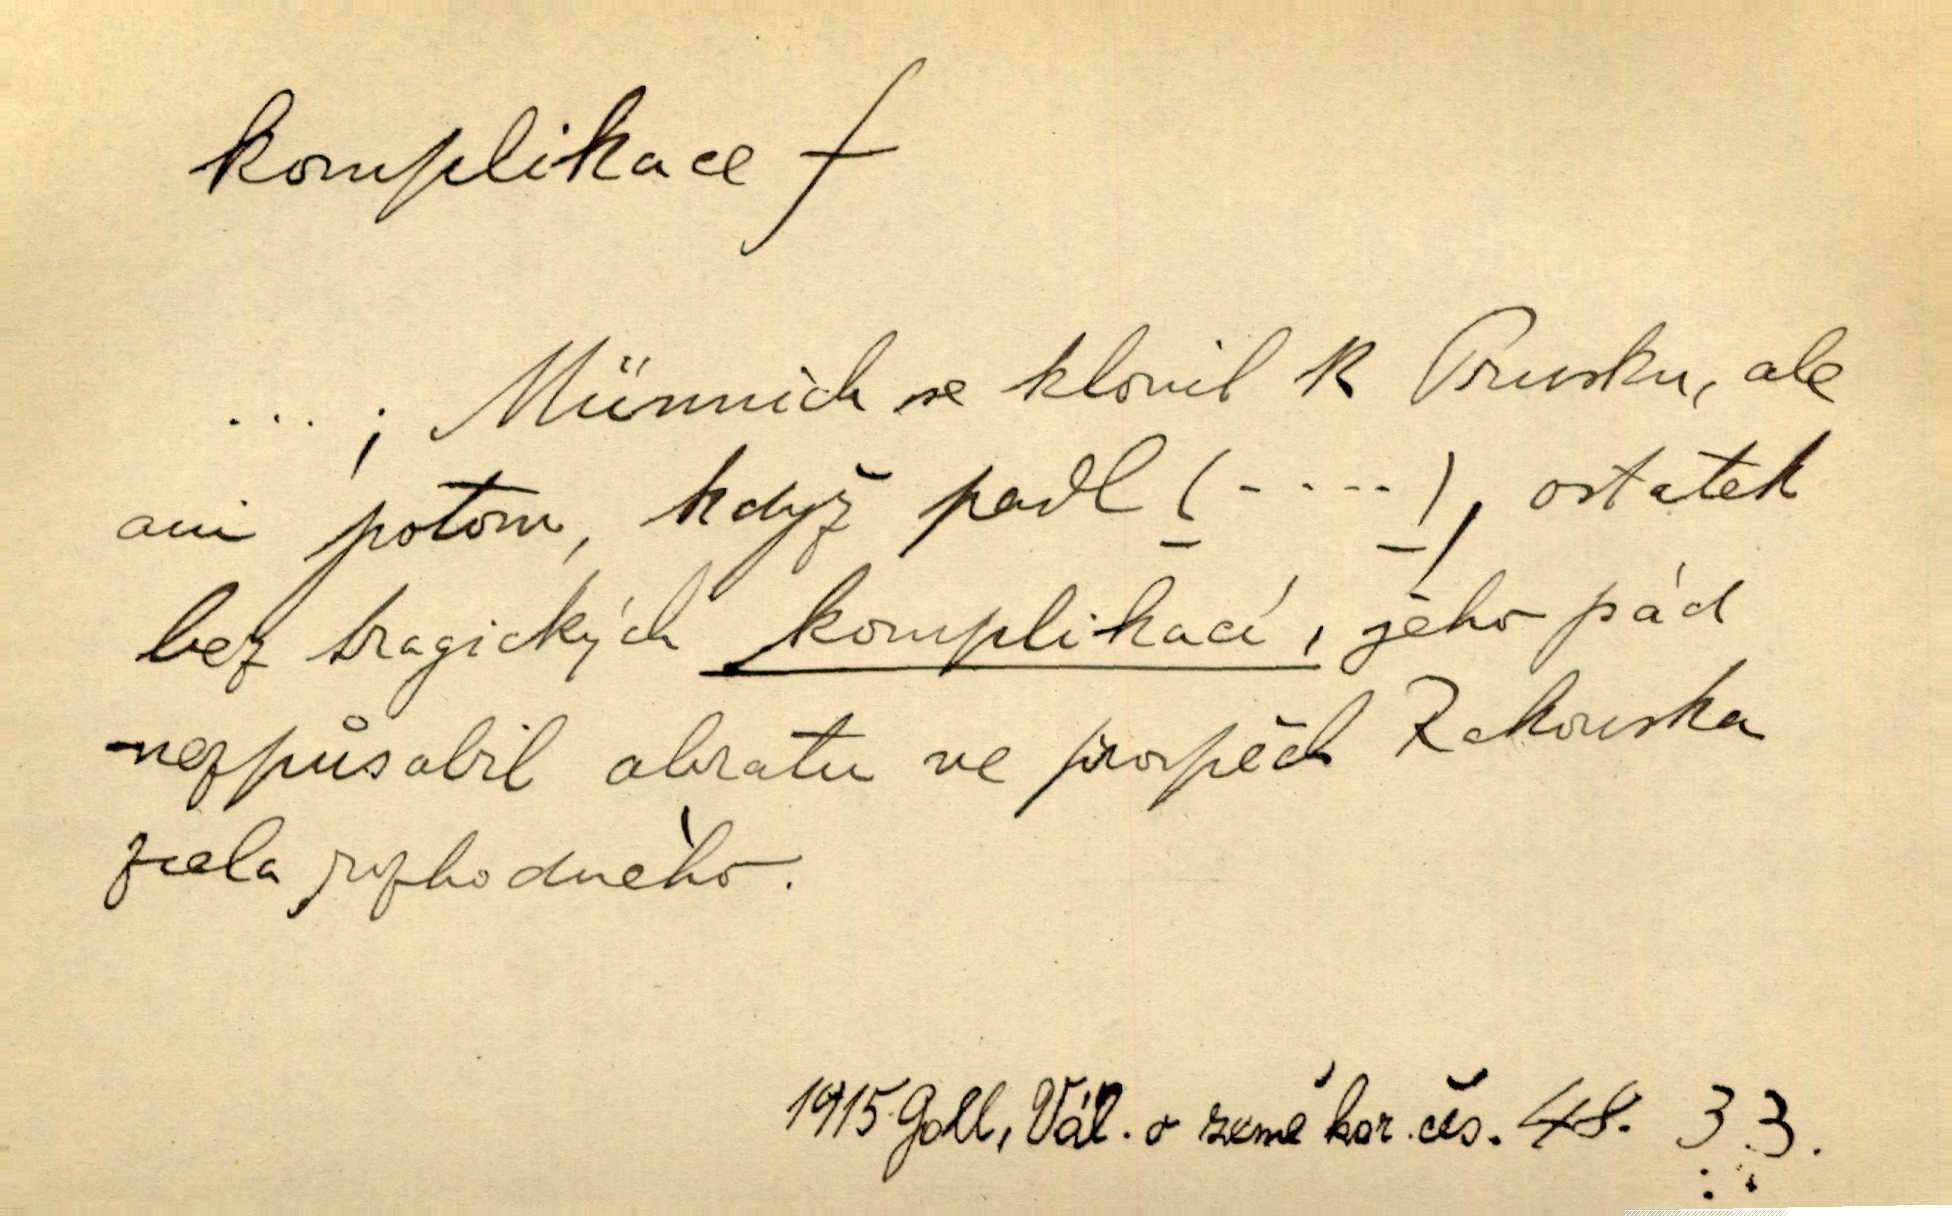 komplikace f
...; Münnich se klonil k Prusku, ale
ani potom, když padl (-----), ostatek
bez tragických komplikací, jeho pád
nezpůsobil obratu ve prospěch Rakouska
zcela rozhodného.
1915 Goll, Vál. o země kor. čes. 48. 33.